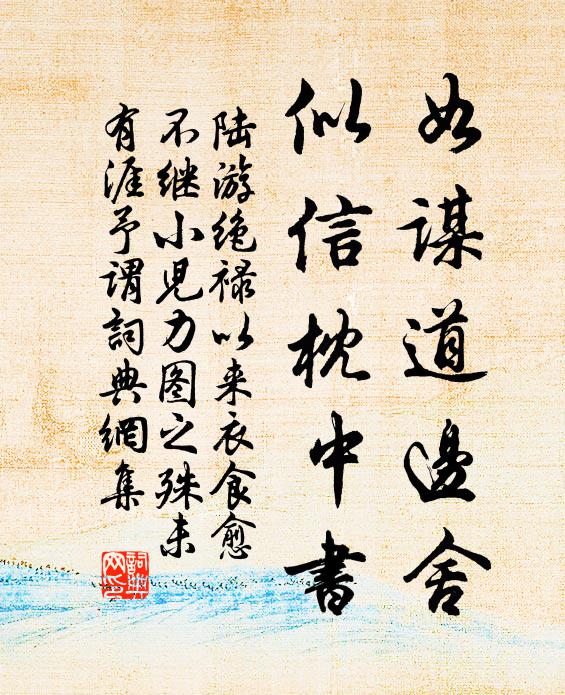 如谋道邊舍
似信枕中書
陆游绝禄以来衣食愈
不继小児力图之殊未
有涯予谓詞典網集
詞典网